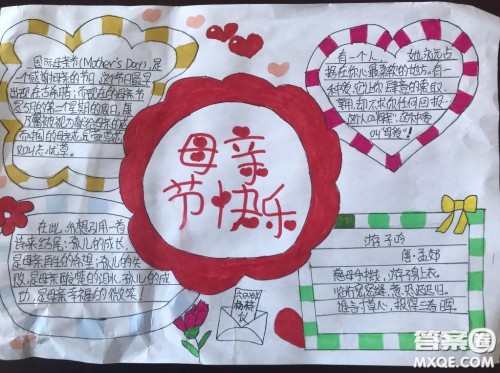 国际母亲节(Mother's Day),是
一个感谢母亲的节日,这个节日最早
出现在古希腊;而现代的母亲节
在5月的第二个星期的假日,康
乃馨被视为献给母亲的花,
而中国的母亲花是萱草花,
又叫忘忧草。
有一个人,她永远占
据在你心最柔软的地方,有一
种爱,它让你肆意的索取、
享用,却不求你任何回报……
这个人叫“母亲”,这种爱
叫“母爱”!
母亲
节快乐
在此,我想引用一首
诗来结尾:孩儿的成长,
是母亲再生的希望;孩儿的失
败,是母亲惭愧的泪水;孩儿的成
功,是母亲幸福的微笑!
游子吟
唐·孟郊
慈母手中线,游子身上衣。
临行密密缝,意恐迟迟归。
谁言寸草心,报得三春晖。
答案圈
MXQE.COM